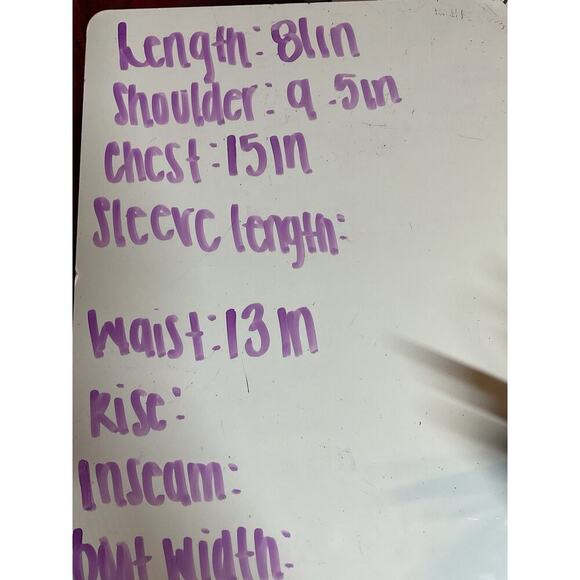 Length: 81in
Shoulder: 9.5in
Chest: 15in
Sleeve length:
Waist: 13in
Rise:
Inseam:
but width: